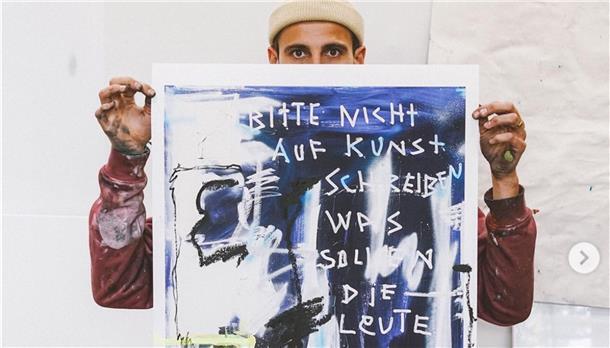 BITTE NICHT
AUF KUNST
SCHREIBEN
WAS
SOLLEN
DIE
LEUTE